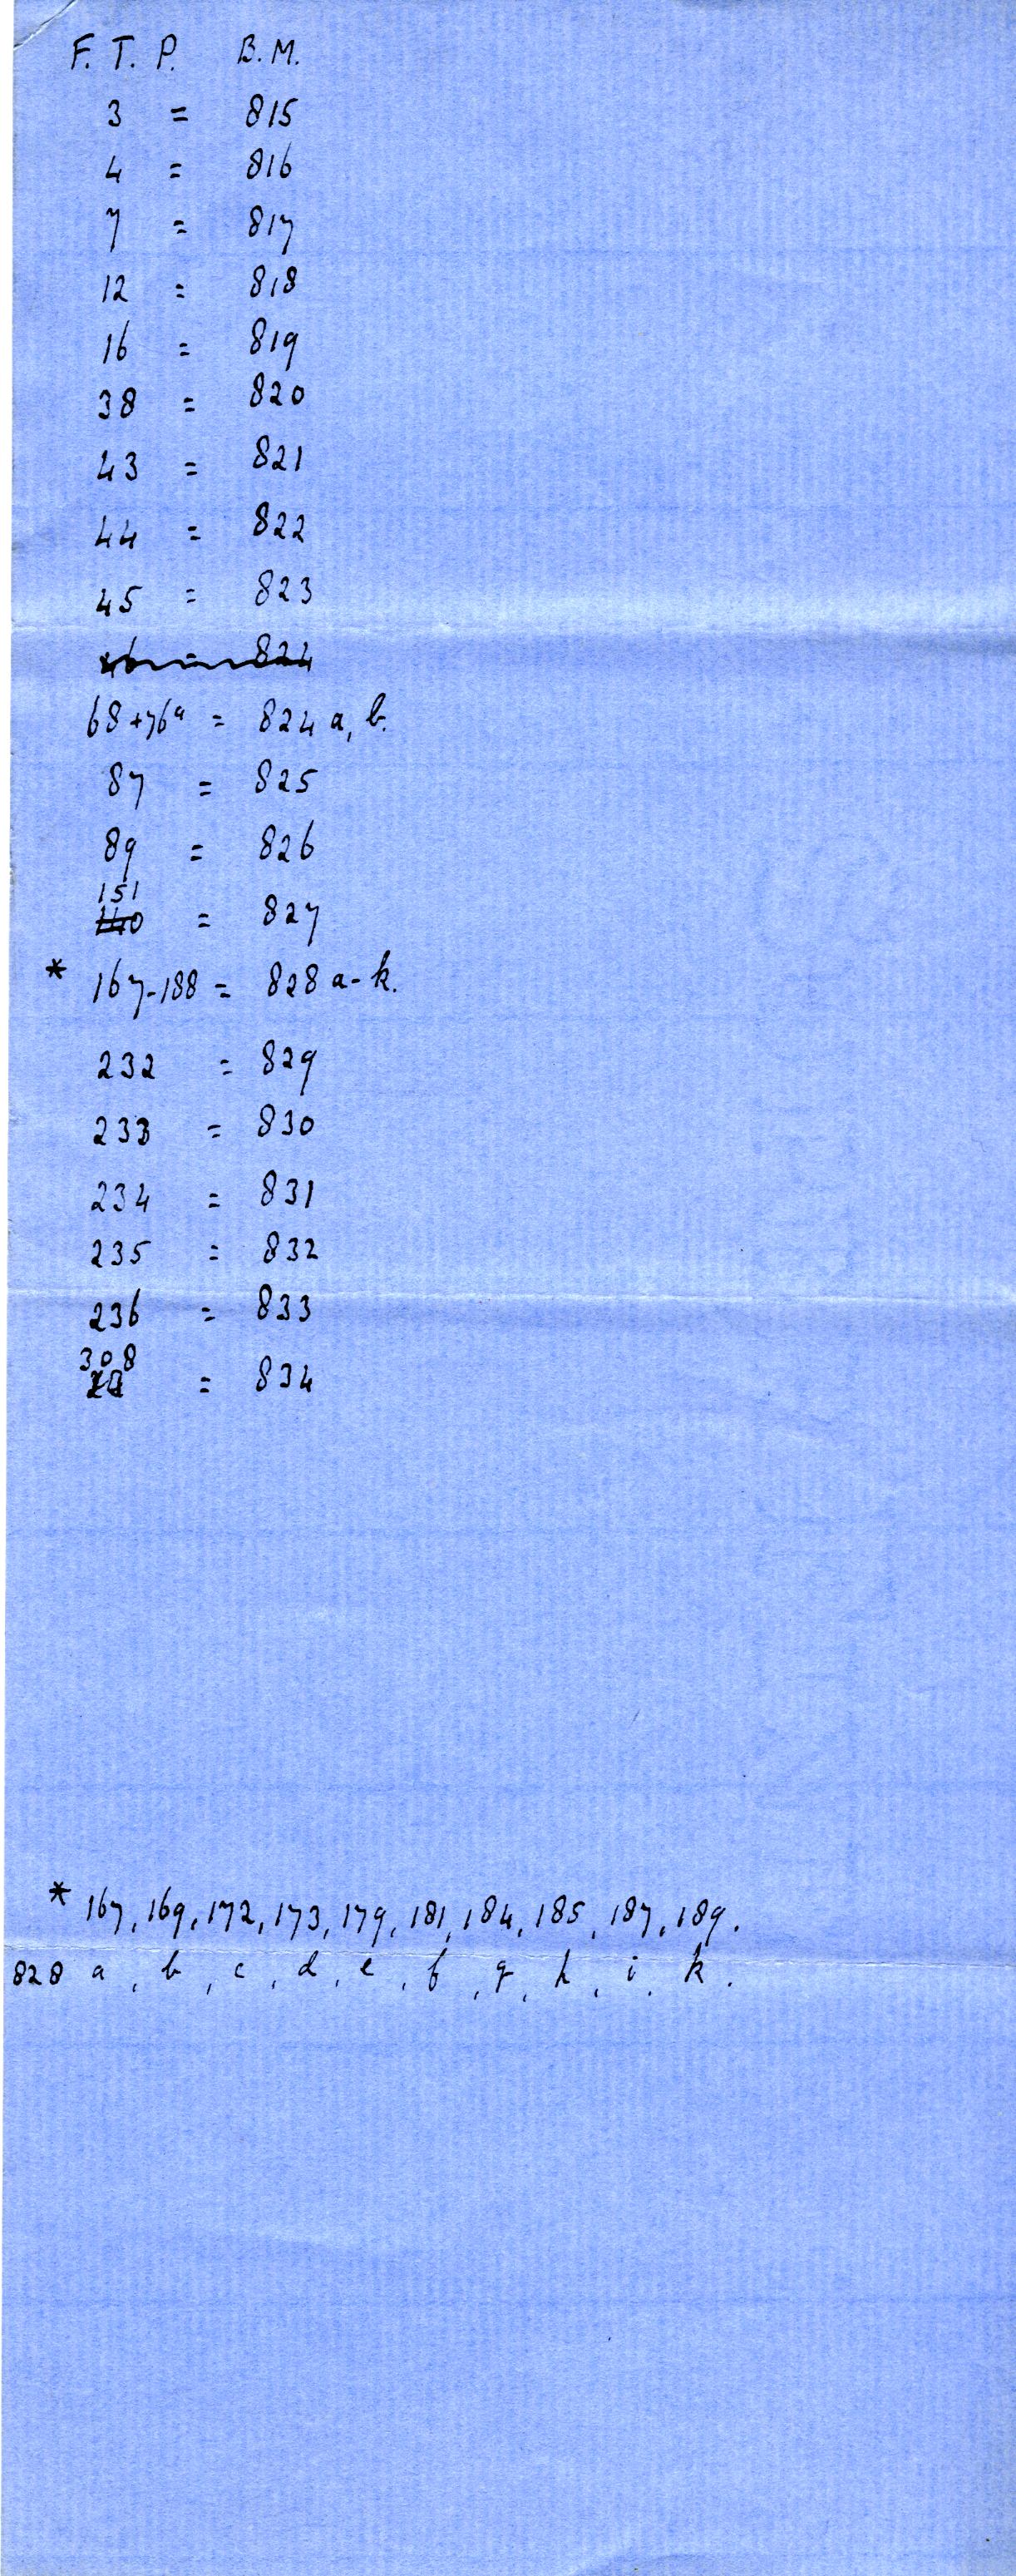 F. T. P. B. M.
3 = 815
4 = 816
7 = 817
12 = 818
16 = 819
38 = 820
43 = 821
44 = 822
45 = 823
46 = 824
68+76a = 824 a, b.
87 = 825
89 = 826
151
140 = 827
* 167-188 = 828 a-k.
232 = 829
233 = 830
234 = 831
235 = 832
236 = 833
308
= 834
* 167, 169, 172, 173, 179, 181, 184, 185, 187, 189.
828 a, b, c, d, e, f, g, h, i, k.